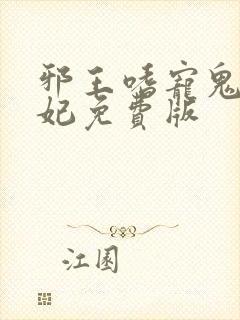 邪王嗜寵鬼
妃免費版
江園